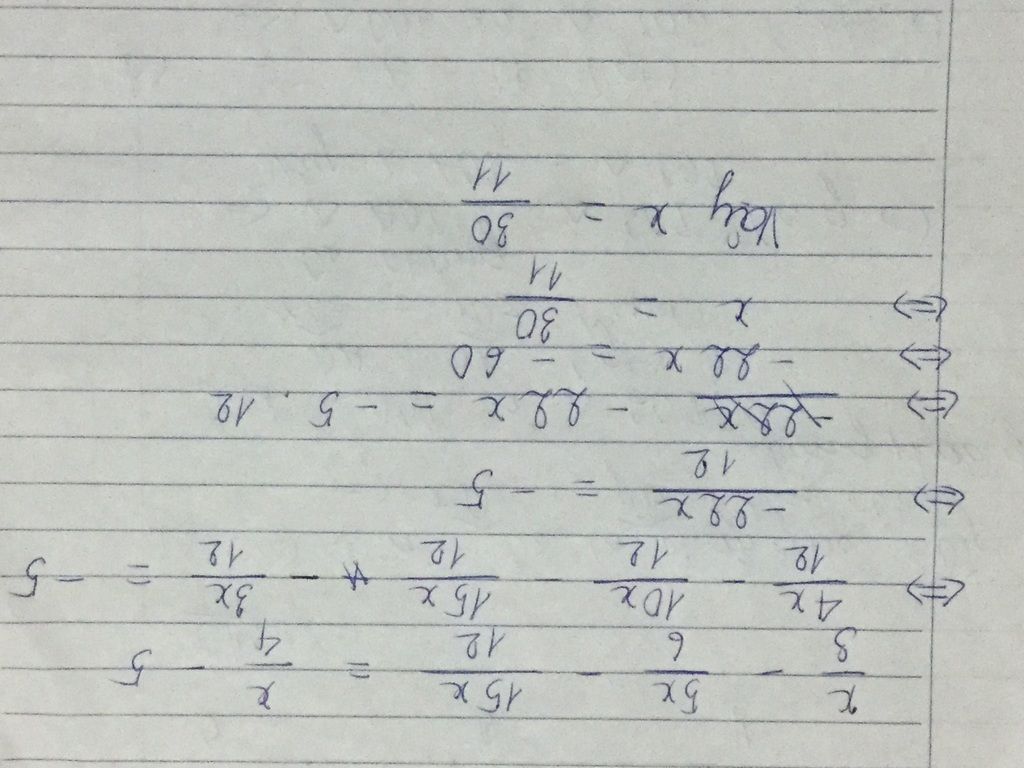 x/3 - 5x/6 - 15x/12 = x/4 - 5
⇔ 4x/12 - 10x/12 - 15x/12 - 3x/12 = -5
⇔ -22x/12 = -5
⇔ - 22x = -5 . 12
⇔ -22x = -60
⇔ x = 30/11
Vậy x = 30/11